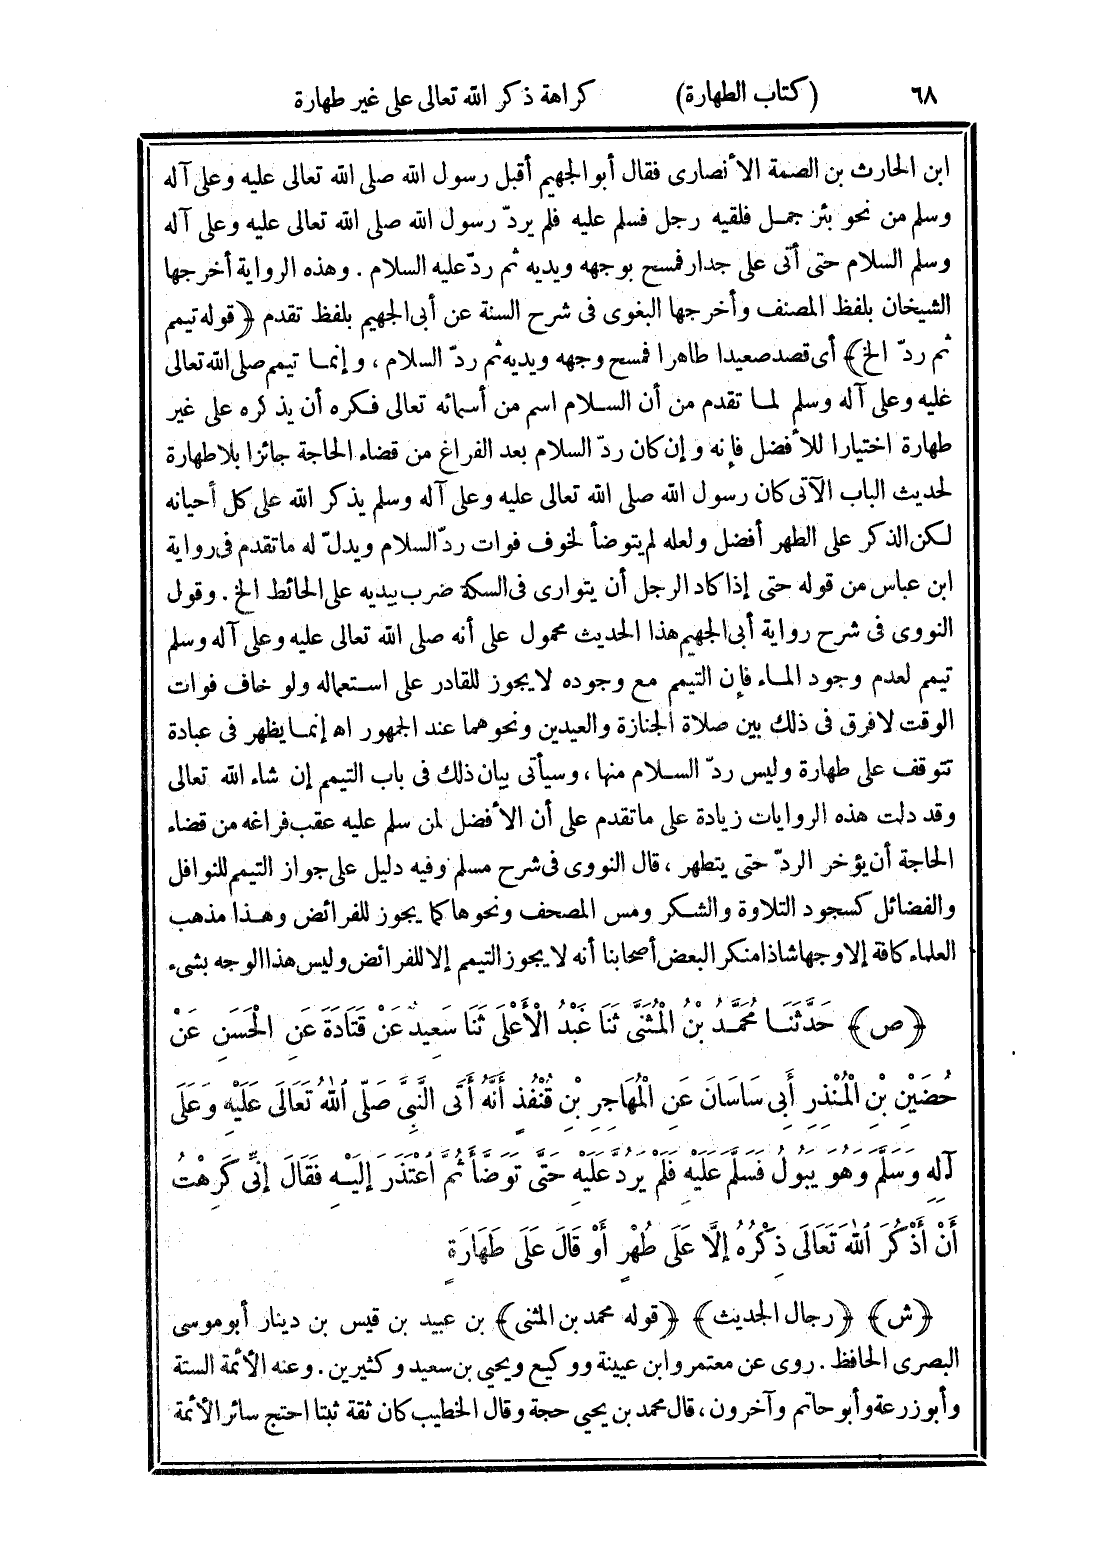 ٦٨ (كتاب الطهارة) كراهة ذكر الله تعالى على غير طهارة
ابن الحارث بن الصمة الأنصارى فقال أبو الجهيم أقبل رسول الله صلى الله تعالى عليه وعلى آله
وسلم من نحو بئر جمل فلقيه رجل فسلم عليه فلم يردّ رسول الله صلى الله تعالى عليه وعلى آله
وسلم السلام حتى أتى على جدار فمسح بوجهه ويديه ثم ردّ عليه السلام . وهذه الرواية أخرجها
الشيخان بلفظ المصنف وأخرجها البغوى فى شرح السنة عن أبى الجهيم بلفظ تقدم ﴿قوله تيمم
ثم ردّ الخ﴾ أى قصد صعيدا طاهرا فمسح وجهه ويديه ثم ردّ السلام ، وإنما تيمم صلى الله تعالى
عليه وعلى آله وسلم لما تقدم من أن السلام اسم من أسمائه تعالى فكره أن يذكره على غير
طهارة اختيارا للأفضل فإنه وإن كان ردّ السلام بعد الفراغ من قضاء الحاجة جائزا بلا طهارة
لحديث الباب الآتى كان رسول الله صلى الله تعالى عليه وعلى آله وسلم يذكر الله على كل أحيانه
لكن الذكر على الطهر أفضل ولعله لم يتوضأ لخوف فوات ردّ السلام ويدلّ له ما تقدم فى رواية
ابن عباس من قوله حتى إذا كاد الرجل أن يتوارى فى السكة ضرب بيديه على الحائط الخ . وقول
النووى فى شرح رواية أبى الجهيم هذا الحديث محمول على أنه صلى الله تعالى عليه وعلى آله وسلم
تيمم لعدم وجود الماء فإن التيمم مع وجوده لا يجوز للقادر على استعماله ولو خاف فوات
الوقت لا فرق فى ذلك بين صلاة الجنازة والعيدين ونحوهما عند الجمهور اه إنما يظهر فى عبادة
تتوقف على طهارة وليس ردّ السلام منها ، وسيأتى بيان ذلك فى باب التيمم إن شاء الله تعالى
وقد دلت هذه الروايات زيادة على ما تقدم على أن الأفضل لمن سلم عليه عقب فراغه من قضاء
الحاجة أن يؤخر الردّ حتى يتطهر ، قال النووى فى شرح مسلم وفيه دليل على جواز التيمم للنوافل
والفضائل كسجود التلاوة والشكر ومس المصحف ونحوها كما يجوز للفرائض وهذا مذهب
العلماء كافة إلا وجها شاذا منكر البعض أصحابنا أنه لا يجوز التيمم إلا للفرائض وليس هذا الوجه بشىء
﴿ص﴾ حَدَّثَنَا مُحَمَّدُ بْنُ الْمُثَنَّى ثَنَا عَبْدُ الْأَعْلَى ثَنَا سَعِيدٌ عَنْ قَتَادَةَ عَنِ الْحَسَنِ عَنْ
حُضَيْنِ بْنِ الْمُنْذِرِ أَبِى سَاسَانَ عَنِ الْمُهَاجِرِ بْنِ قُنْفُذٍ أَنَّهُ أَتَى النَّبِىَّ صَلَّى اللهُ تَعَالَى عَلَيْهِ وَعَلَى
آلِهِ وَسَلَّمَ وَهُوَ يَبُولُ فَسَلَّمَ عَلَيْهِ فَلَمْ يَرُدَّ عَلَيْهِ حَتَّى تَوَضَّأَ ثُمَّ اعْتَذَرَ إِلَيْهِ فَقَالَ إِنِّى كَرِهْتُ
أَنْ أَذْكُرَ اللهَ تَعَالَى ذِكْرُهُ إِلَّا عَلَى طُهْرٍ أَوْ قَالَ عَلَى طَهَارَةٍ
﴿ش﴾ ﴿رجال الحديث﴾ ﴿قوله محمد بن المثنى﴾ بن عبيد بن قيس بن دينار أبو موسى
البصرى الحافظ . روى عن معتمر وابن عيينة ووكيع ويحيى بن سعيد وكثيرين . وعنه الأئمة الستة
وأبو زرعة وأبو حاتم وآخرون ، قال محمد بن يحيى حجة وقال الخطيب كان ثقة ثبتا احتج سائر الأئمة